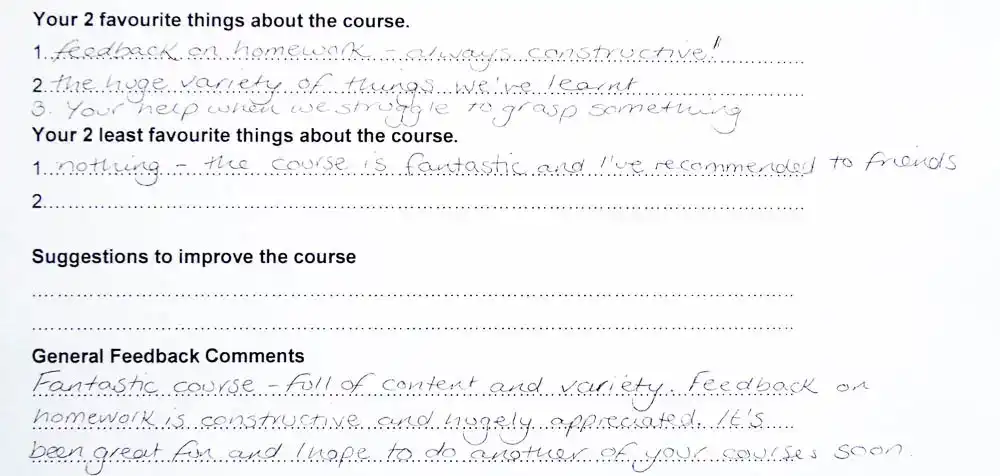 Your 2 favourite things about the course.
1. feedback on homework - always constructive!
2. the huge variety of things we've learnt
3. Your help when we struggle to grasp something
Your 2 least favourite things about the course.
1. nothing - the course is fantastic and I've recommended to friends
2.
Suggestions to improve the course
General Feedback Comments
Fantastic course - full of content and variety. Feedback on
homework is constructive and hugely appreciated. It's
been great fun and I hope to do another of your courses soon.